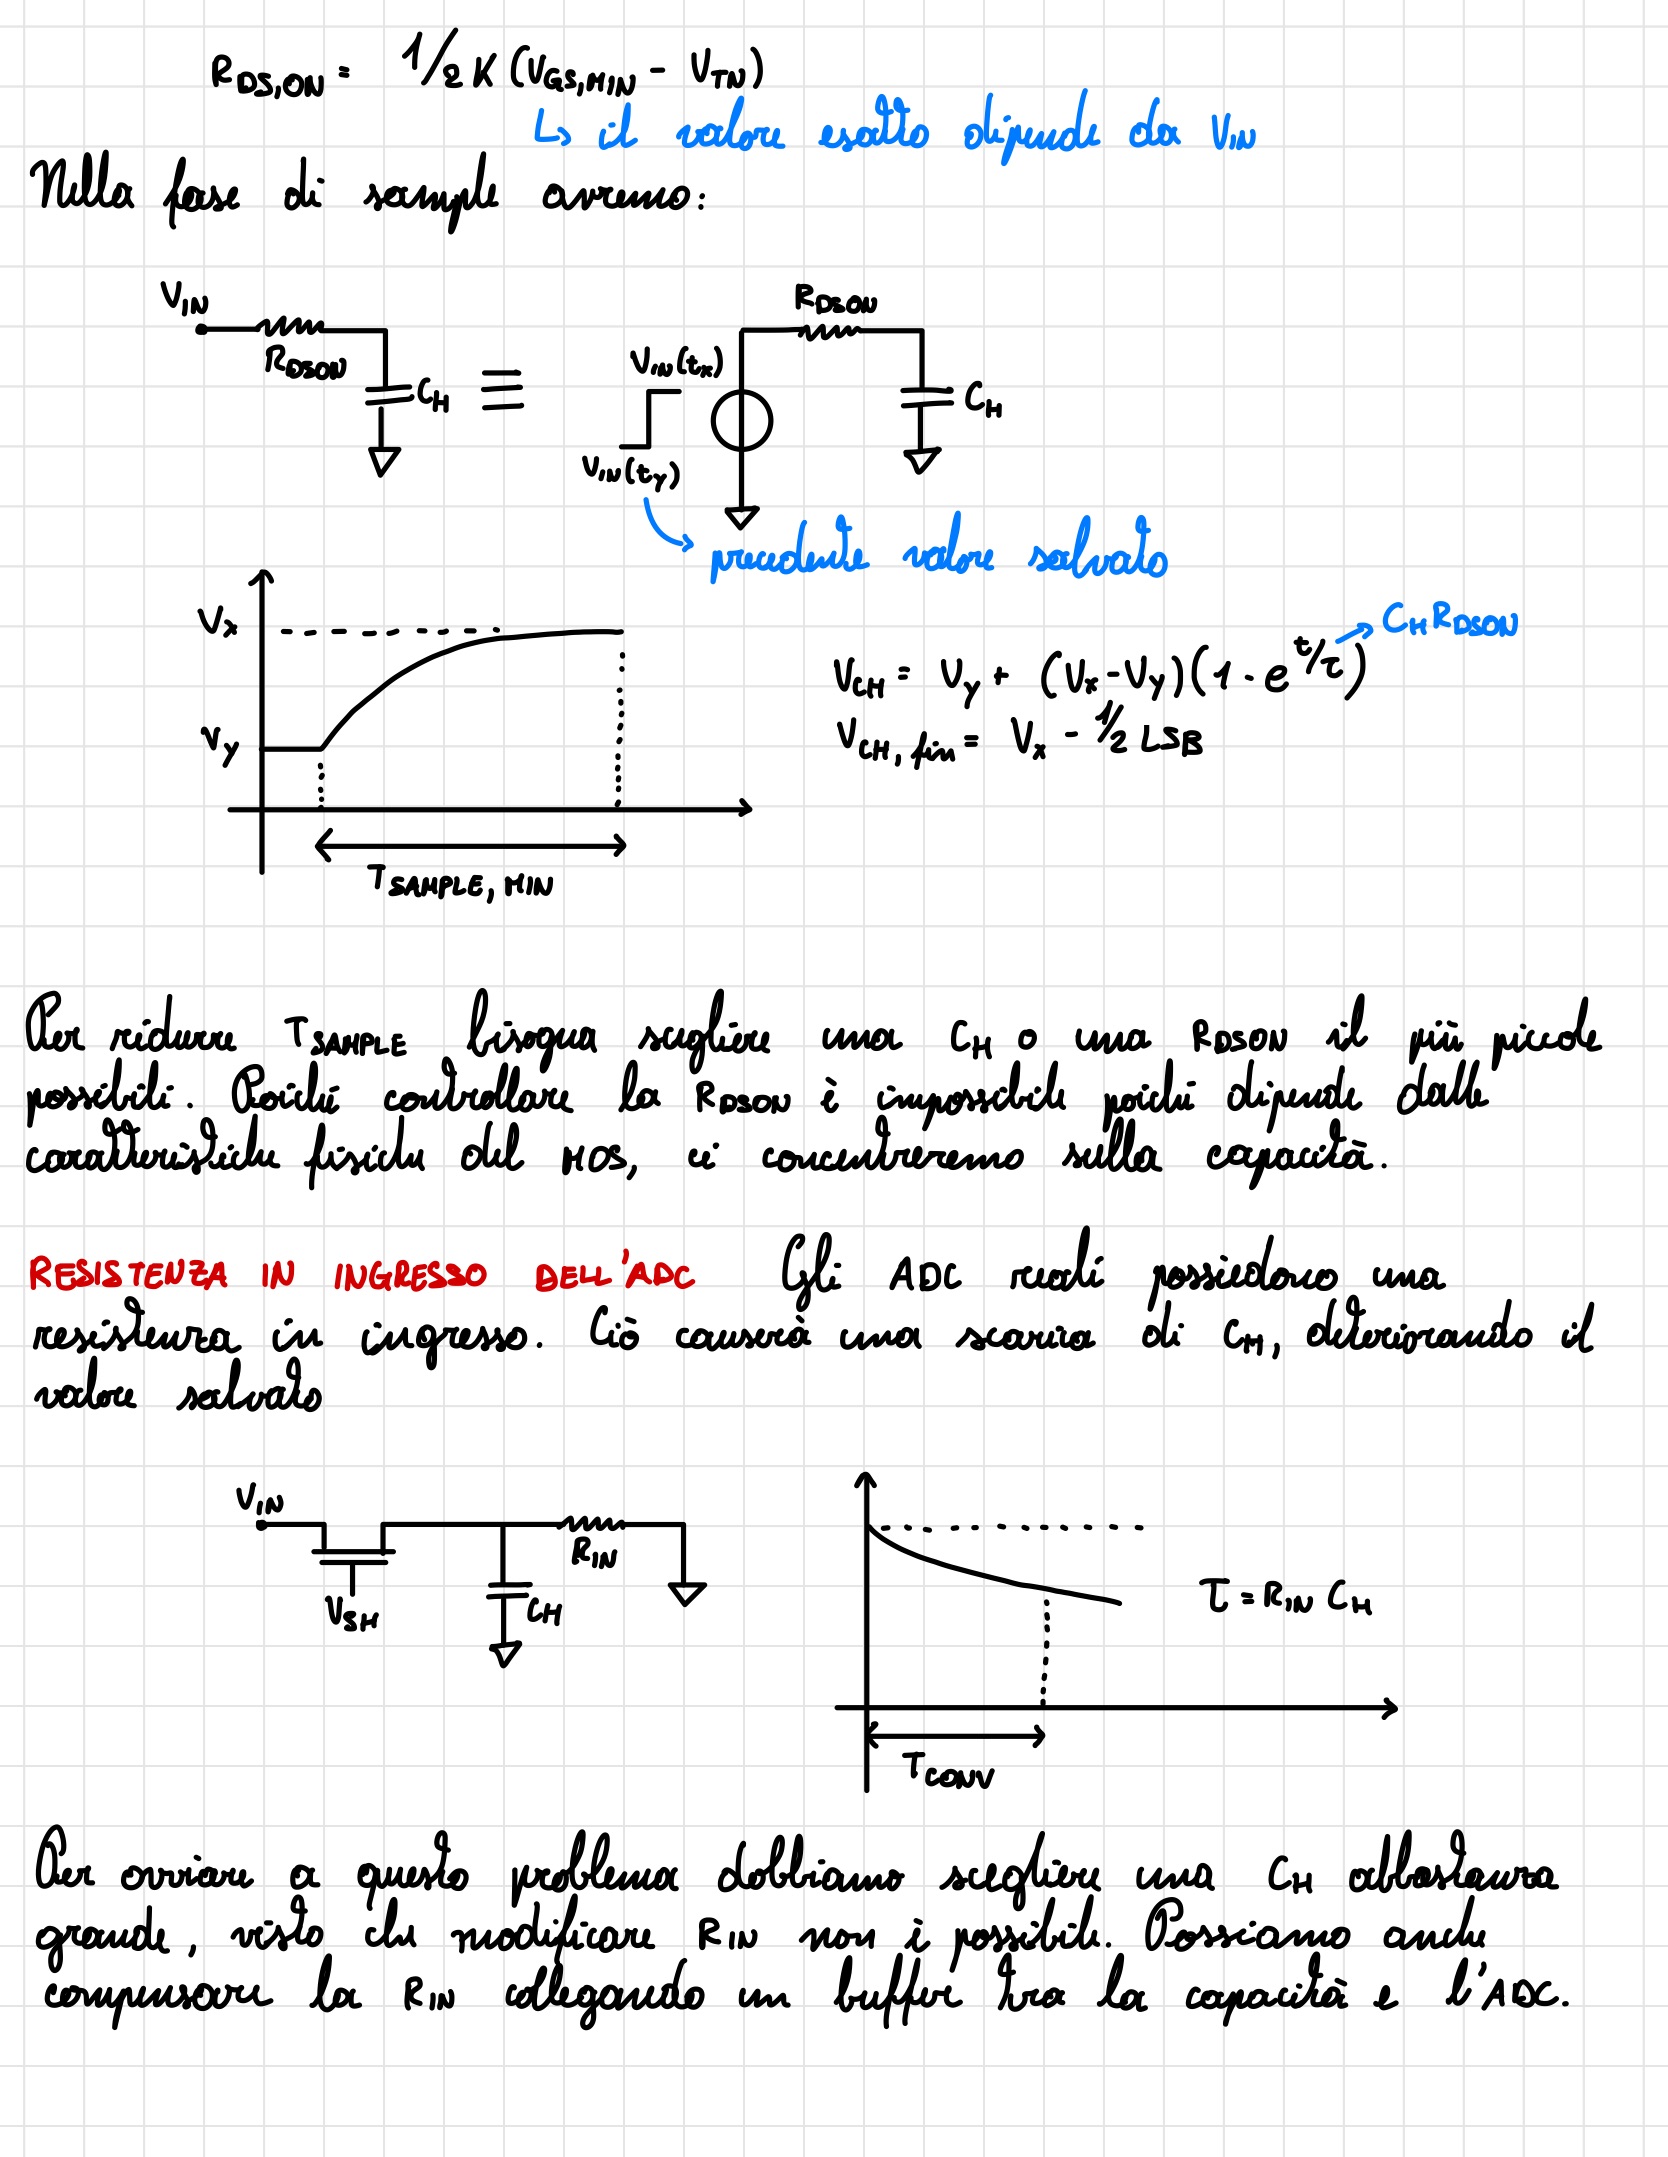 R_DS,ON = 1/2 K (V_GS,MIN - V_TN)
↳ il valore esatto dipende da V_IN
Nella fase di sample avremo:
V_IN
R_DSON
C_H
≡
V_IN(t_x)
V_IN(t_y)
R_DSON
C_H
precedente valore salvato
V_x
V_y
T_SAMPLE, MIN
C_H R_DSON
V_CH = V_y + (V_x - V_y)(1 - e^t/τ)
V_CH, fin = V_x - 1/2 LSB
Per ridurre T_SAMPLE bisogna scegliere una C_H o una R_DSON il più piccole
possibili. Poiché controllare la R_DSON è impossibile poiché dipende dalle
caratteristiche fisiche del MOS, ci concentreremo sulla capacità.
RESISTENZA IN INGRESSO DELL'ADC Gli ADC reali possiedono una
resistenza in ingresso. Ciò causerà una scarica di C_H, deteriorando il
valore salvato
V_IN
V_SH
C_H
R_IN
T_CONV
τ = R_IN C_H
Per ovviare a questo problema dobbiamo scegliere una C_H abbastanza
grande, visto che modificare R_IN non è possibile. Possiamo anche
compensare la R_IN collegando un buffer tra la capacità e l'ADC.